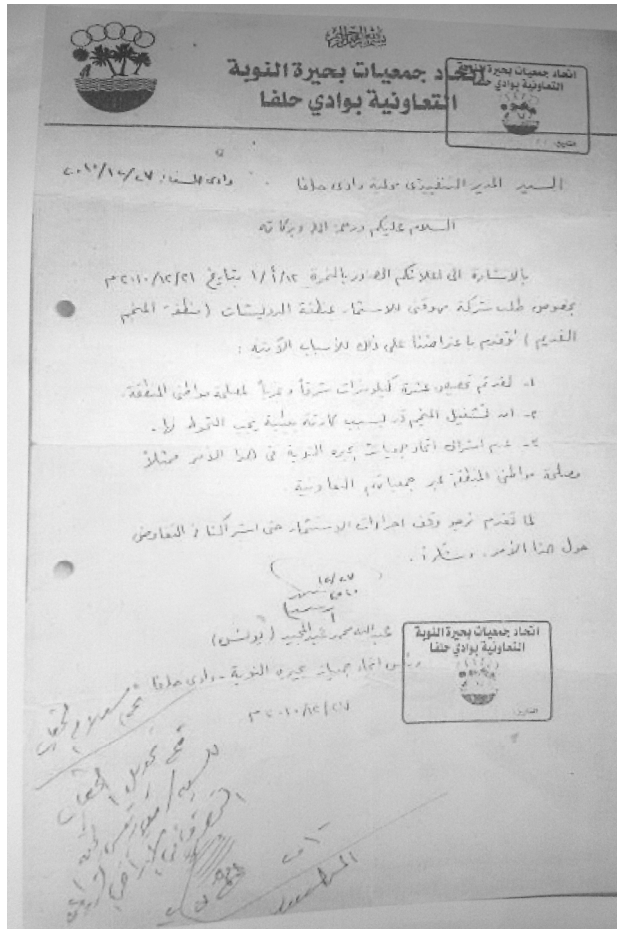 بسم الله الرحمن الرحيم
اتحاد جمعيات بحيرة النوبة
التعاونية بوادي حلفا
اتحاد جمعيات بحيرة النوبة
التعاونية بوادي حلفا
التاريخ:
السيد المدير التنفيذي محلية وادي حلفا . وادي حلفا: ٢٠١٠/١٢/٢٧
السلام عليكم ورحمة الله وبركاته
بالاشارة الى اعلانكم الصادر بالنمرة ١/أ/١٢ بتاريخ ٢٠١٠/١٢/٢١م
بخصوص طلب شركة للاستثمار بمنطقة (منطقة المنجم
القديم) نتقدم باعتراضنا على ذلك للأسباب الآتية :
١- لقد تم تخصيص عشرة كيلومترات شرقاً وغرباً لمصلحة مواطني المنطقة.
٢- ان تشغيل المنجم قد يسبب كارثة بيئية يجب التحوط لها.
٣- عدم اشراك اتحاد جمعيات بحيرة النوبة في هذا الأمر ممثلاً
ومصلحة مواطني المنطقة عبر جمعياتهم التعاونية.
لما تقدم نرجو وقف اجراءات الاستثمار حتى اشراكنا في التفاوض
حول هذا الأمر. وشكراً.
١٢/٢٧
عبدالله محمد عبدالمجيد
رئيس اتحاد جمعيات بحيرة النوبة - وادي حلفا
٢٠١٠/١٢/٢٧م
اتحاد جمعيات بحيرة النوبة
التعاونية بوادي حلفا
التاريخ: